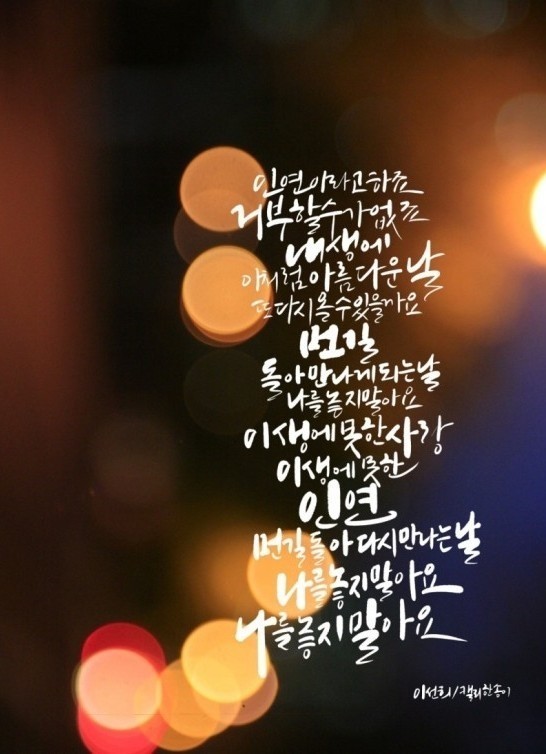 인연이라고하죠
거부할수가없죠
내생에
이처럼아름다운날
또다시올수있을까요
먼길
돌아만나게되는날
나를놓지말아요
이생에못한사랑
이생에못한
인연
먼길돌아다시만나는날
나를놓지말아요
나를놓지말아요
이선희/캘리한송이